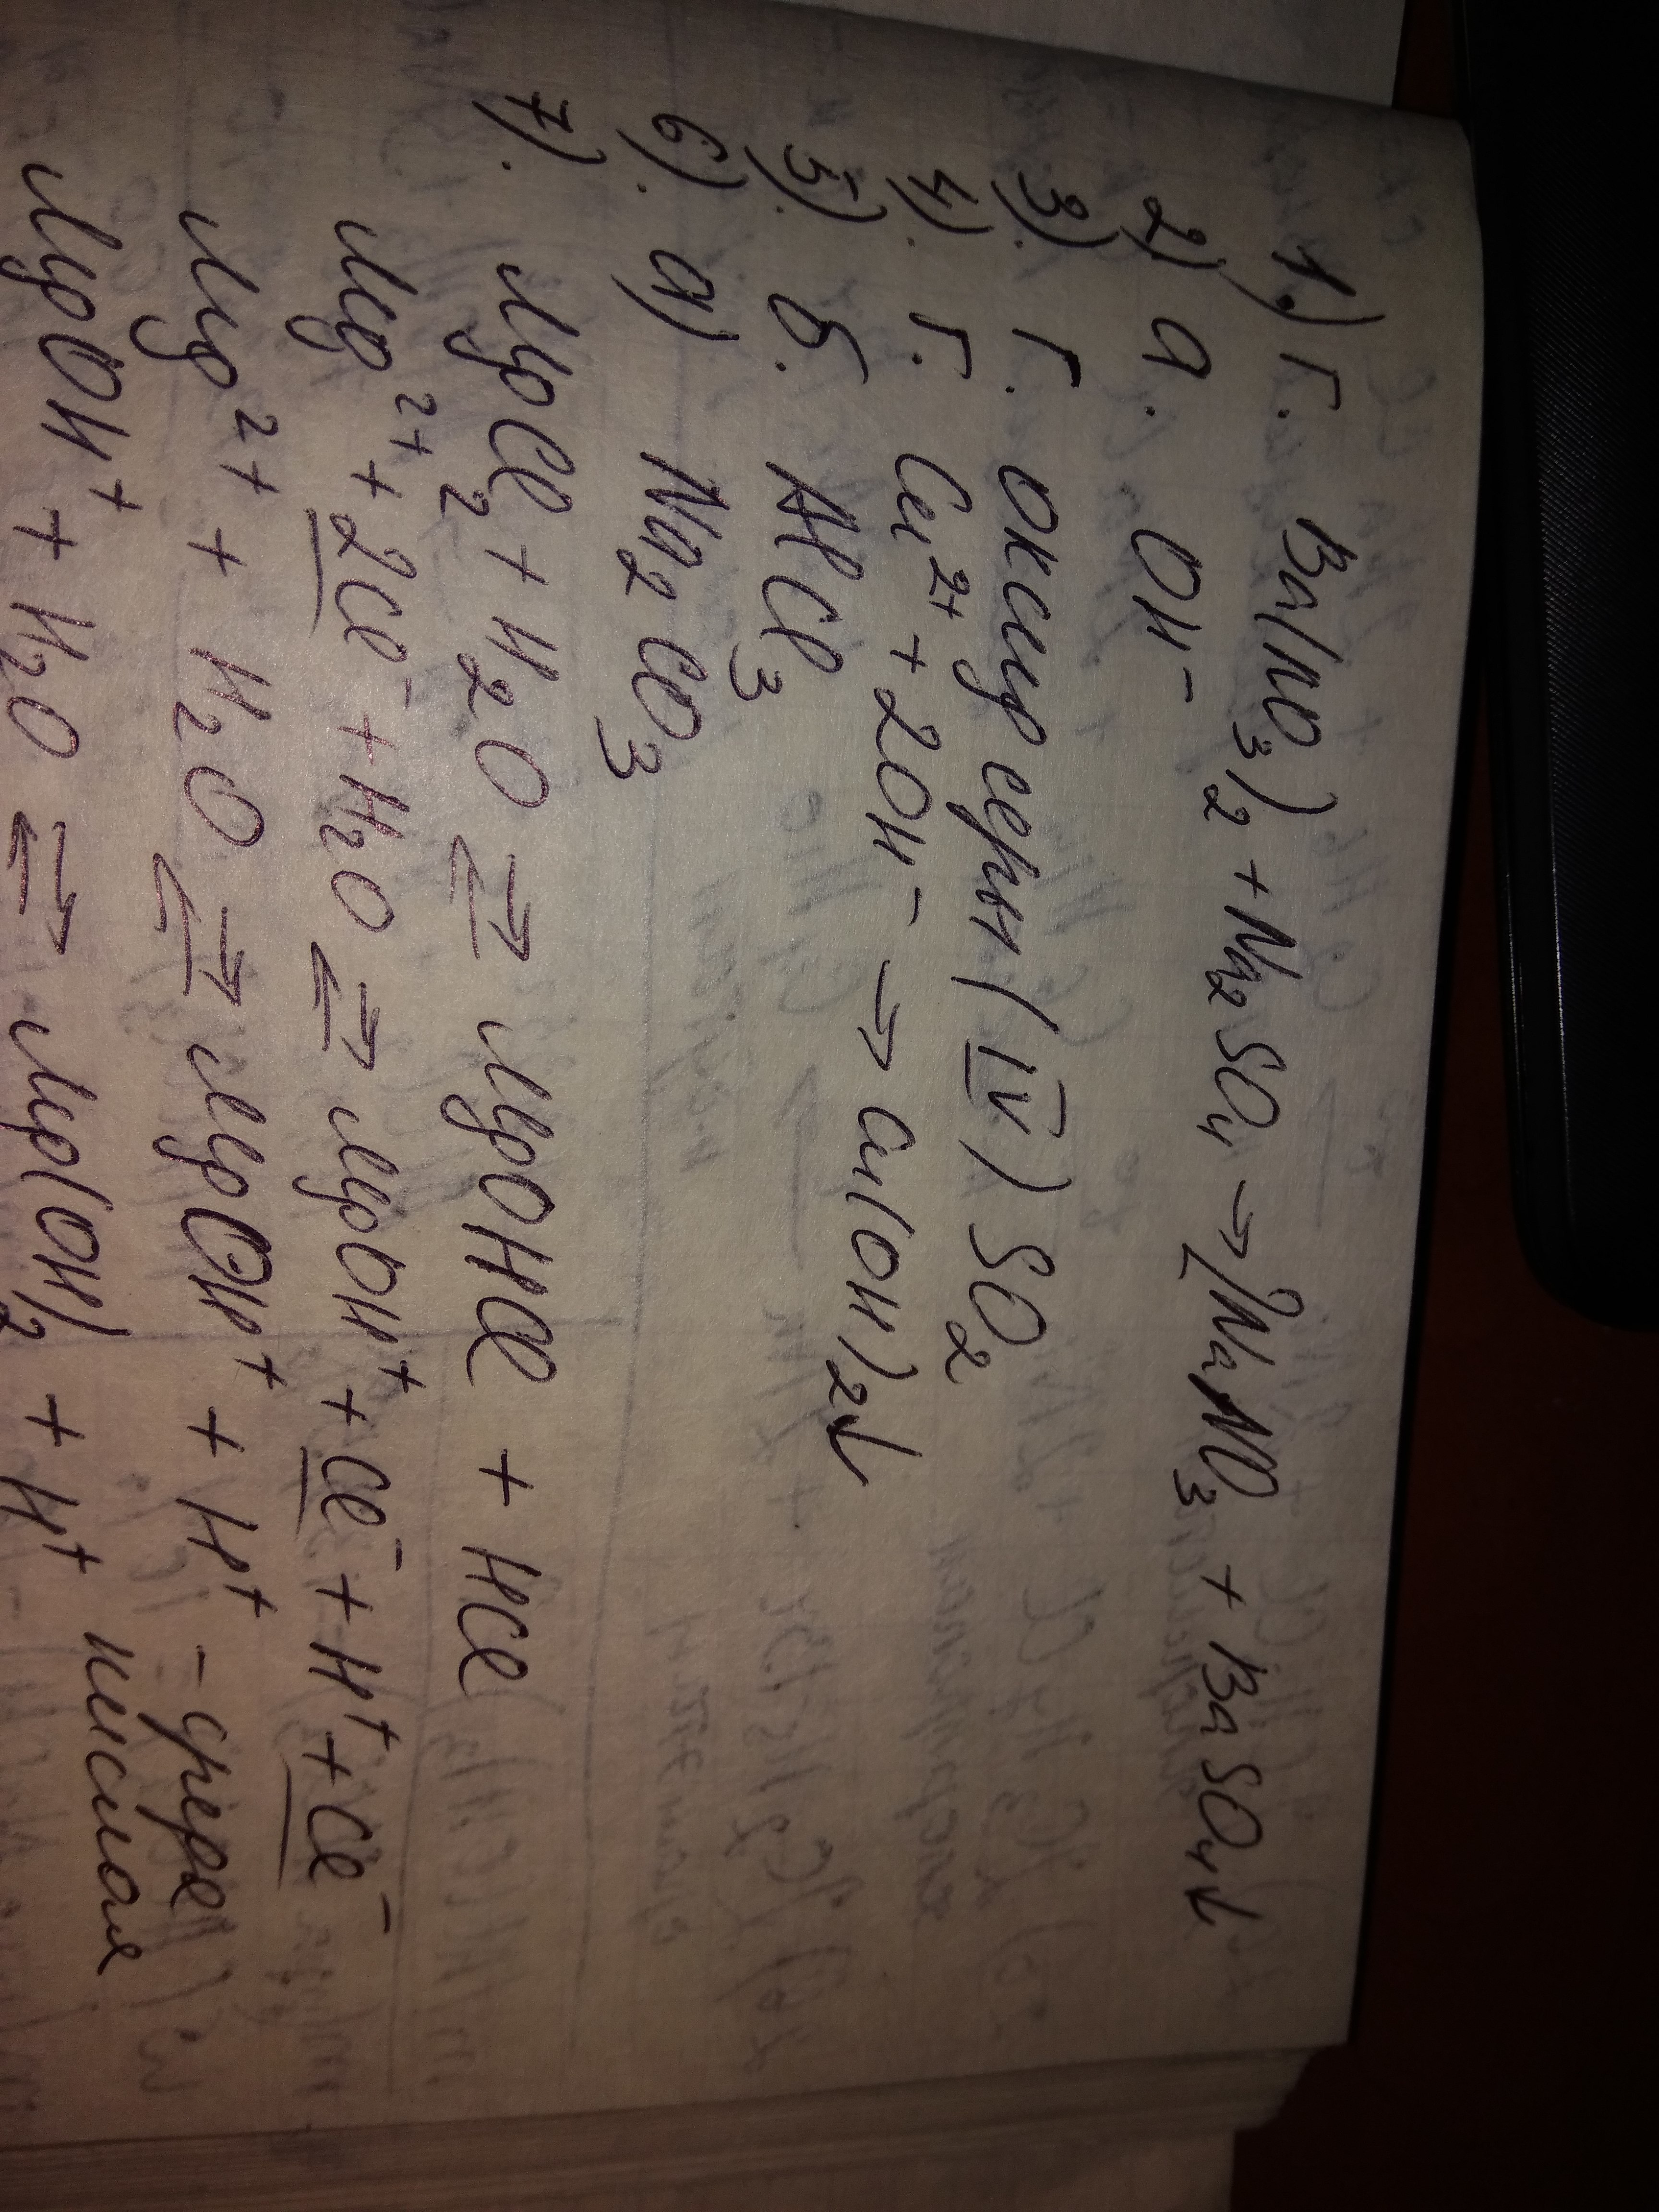 1.) Г. Ba(NO₃)₂ + Na₂SO₄ → 2NaNO₃ + BaSO₄↓
2) а. OH⁻
3). Г. оксид серы (IV) SO₂
4). Г. Cu²⁺ + 2OH⁻ → Cu(OH)₂↓
5). б. AlCl₃
6). а) Na₂CO₃
7). MgCl₂ + H₂O ⇄ MgOHCl + HCl
Mg²⁺ + 2Cl⁻ + H₂O ⇄ MgOH⁺ + Cl⁻ + H⁺ + Cl⁻
Mg²⁺ + H₂O ⇄ MgOH⁺ + H⁺ - среда
кислая
MgOH⁺ + H₂O ⇄ Mg(OH)₂ + H⁺